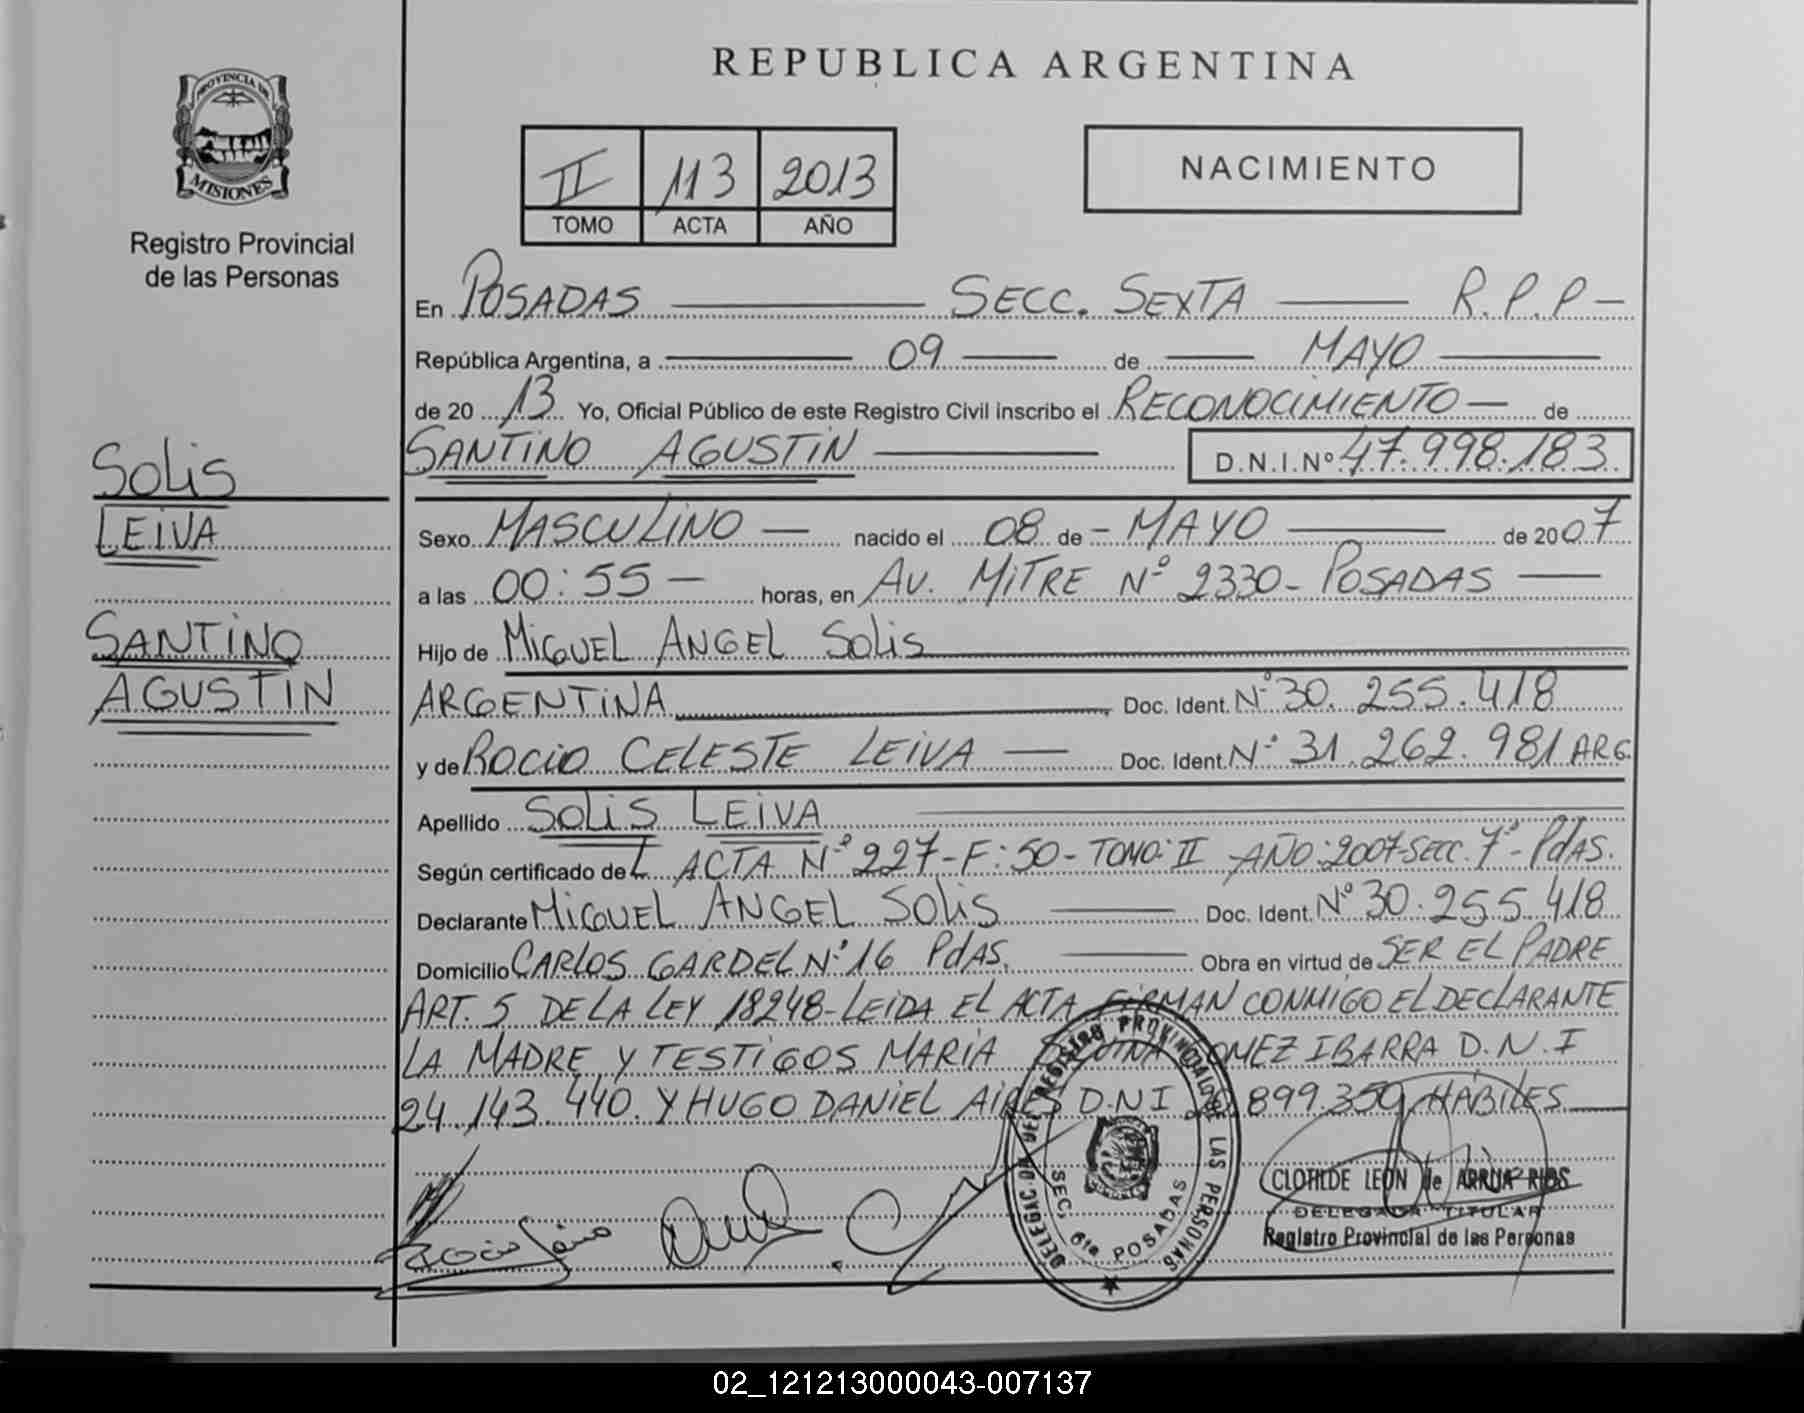 REPUBLICA ARGENTINA
PROVINCIA DE
MISIONES
Registro Provincial
de las Personas
II 113 2013
TOMO ACTA AÑO
NACIMIENTO
En POSADAS SECC. SEXTA R.P.P
República Argentina, a 09 de MAYO
de 2013 Yo, Oficial Público de este Registro Civil inscribo el RECONOCIMIENTO de
SANTINO AGUSTIN D.N.I.Nº 47.998.183
SOLIS
LEIVA
SANTINO
AGUSTIN
Sexo MASCULINO nacido el 08 de MAYO de 2007
a las 00:55 horas, en AV. MITRE Nº 2330 - POSADAS
Hijo de MIGUEL ANGEL SOLIS
ARGENTINA Doc. Ident. Nº 30.255.418
y de ROCIO CELESTE LEIVA Doc. Ident. Nº 31.262.981 ARG.
Apellido SOLIS LEIVA
Según certificado de L ACTA Nº 227-F:50-TOMO:II AÑO:2007-SECC.7º-PdAS.
Declarante MIGUEL ANGEL SOLIS Doc. Ident. Nº 30.255.418
Domicilio CARLOS GARDEL Nº 16 PdAS. Obra en virtud de SER EL PADRE
ART. 5 DE LA LEY 18248-LEIDA EL ACTA FIRMAN CONMIGO EL DECLARANTE
LA MADRE Y TESTIGOS MARIA GOMEZ IBARRA D.N.I
24.143.440. Y HUGO DANIEL AIRES D.N.I 899.350 HÁBILES
DELEGAC. DEL REGISTRO PROVINCIAL DE LAS PERSONAS
SEC. 6ta POSADAS
CLOTILDE LEON de ARRUA RIOS
DELEGADA TITULAR
Registro Provincial de las Personas
02_121213000043-007137